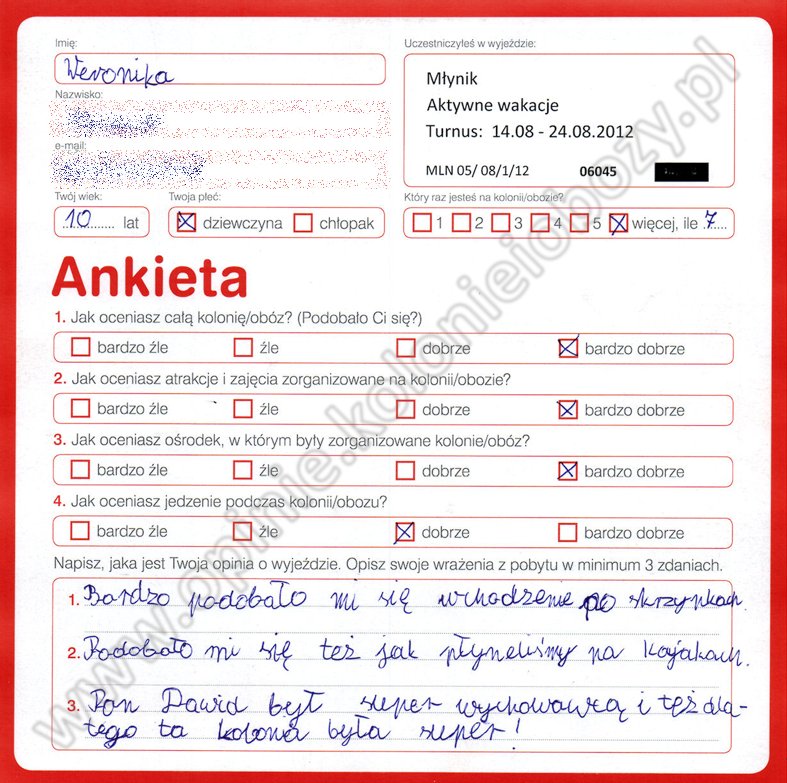 Imię:
Weronika
Nazwisko:
e-mail:
Twój wiek:
10 lat
Twoja płeć:
dziewczyna chłopak
Uczestniczyłeś w wyjeździe:
Młynik
Aktywne wakacje
Turnus: 14.08 - 24.08.2012
MLN 05/ 08/1/12 06045
Który raz jesteś na kolonii/obozie?
1 2 3 4 5 więcej, ile 7
Ankieta
1. Jak oceniasz całą kolonię/obóz? (Podobało Ci się?)
bardzo źle źle dobrze bardzo dobrze
2. Jak oceniasz atrakcje i zajęcia zorganizowane na kolonii/obozie?
bardzo źle źle dobrze bardzo dobrze
3. Jak oceniasz ośrodek, w którym były zorganizowane kolonie/obóz?
bardzo źle źle dobrze bardzo dobrze
4. Jak oceniasz jedzenie podczas kolonii/obozu?
bardzo źle źle dobrze bardzo dobrze
Napisz, jaka jest Twoja opinia o wyjeździe. Opisz swoje wrażenia z pobytu w minimum 3 zdaniach.
1. Bardzo podobało mi się wchodzenie po skrzynkach.
2. Podobało mi się też jak płyneliśmy na kajakach.
3. Pan Dawid był super wychowawcą i też dla-
tego ta kolonia była super!
www.opinie.kolonieiobozy.pl